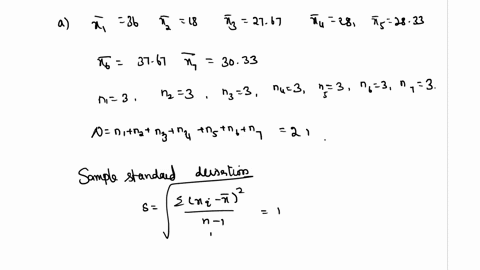 a) x̄₁ =36 x̄₂ =18 x̄₃ = 27.67 x̄₄ =28, x̄₅ = 28.33
x̄₆ = 37.67 x̄₇ = 30.33
n₁=3, n₂ =3, n₃=3, n₄=3, n₅=3, n₆=3, n₇=3.
N=n₁+n₂+n₃+n₄ +n₅+n₆+n₇ =21.
Sample standard deviation
s= √(Σ(xᵢ-x̄)²/(n-1)) = 1